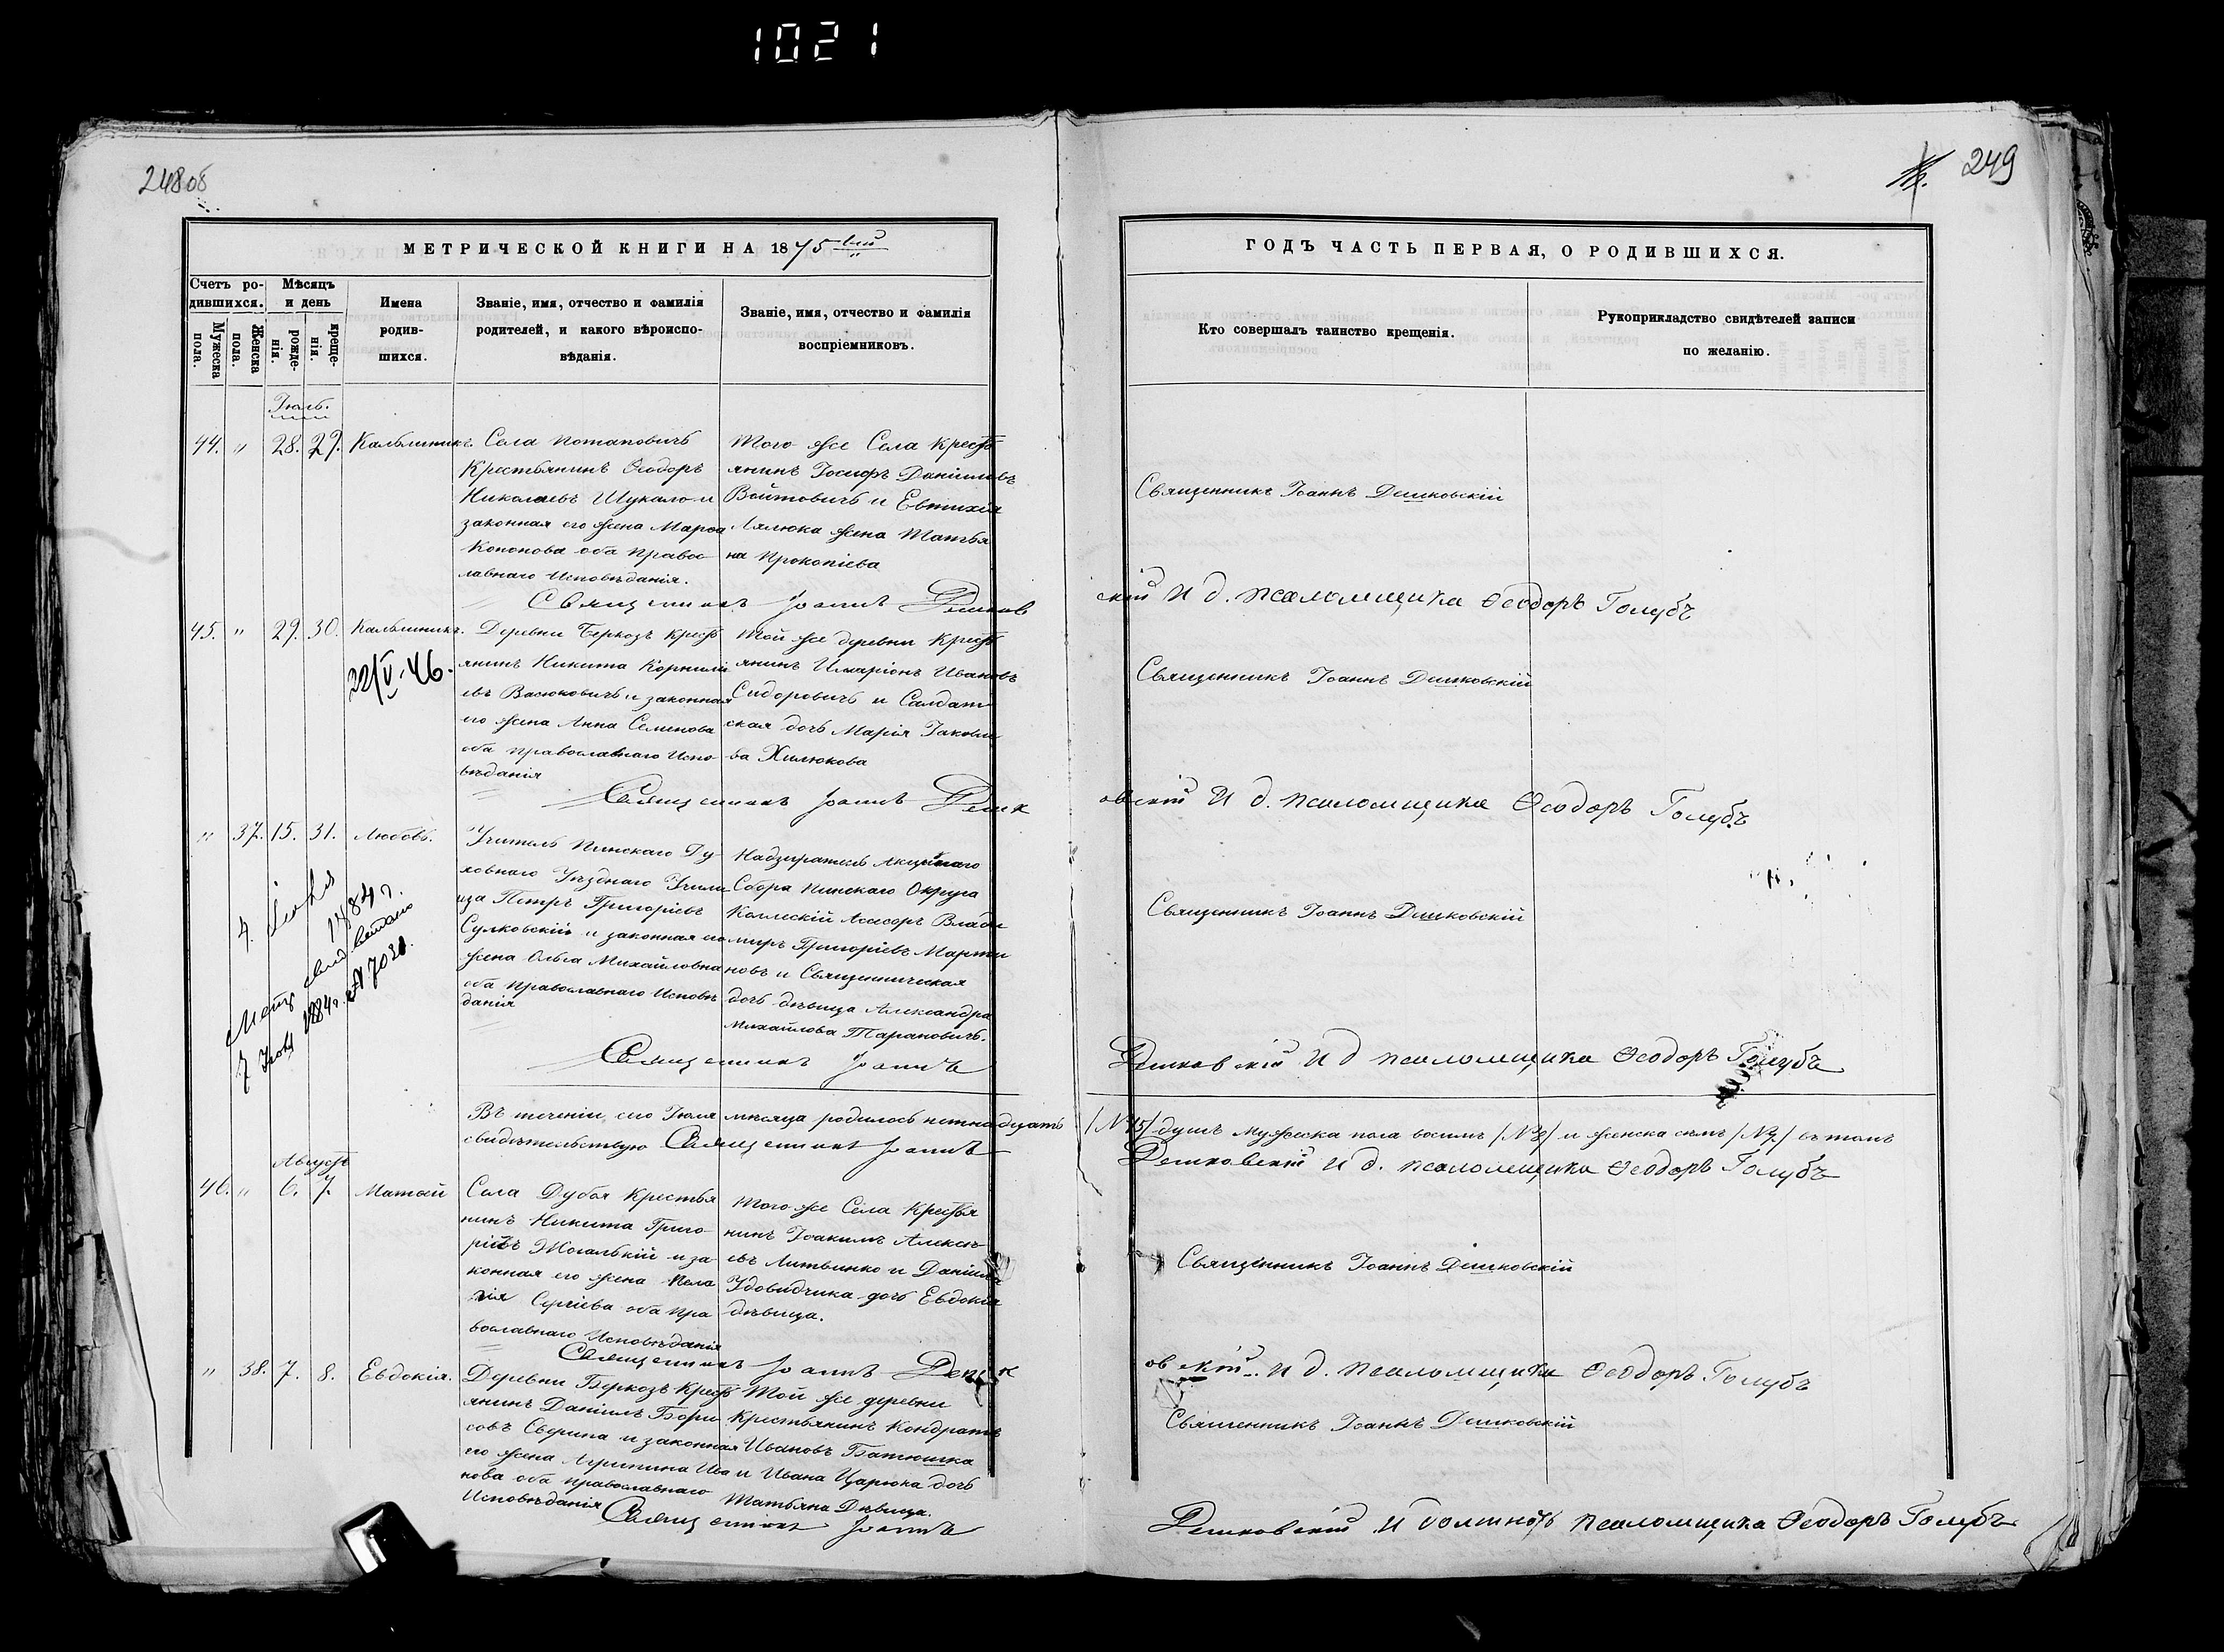 1021
248об
249
МЕТРИЧЕСКОЙ КНИГИ НА 1875 вый
Счетъ ро-
дившихся.
Мужеска пола.
Женска пола.
Мѣсяцъ
и день
рожде-
нія.
креще-
нія.
Имена
родив-
шихся.
Званіе, имя, отчество и фамилія
родителей, и какого вѣроиспо-
вѣданія.
Званіе, имя, отчество и фамилія
воспріемниковъ.
ГОДЪ ЧАСТЬ ПЕРВАЯ, О РОДИВШИХСЯ.
Кто совершалъ таинство крещенія.
Рукоприкладство свидѣтелей записи
по желанію.
Іюль.
44. " 28. 29. Кальлиникъ.
Села Потаповичъ
Крестьянинъ Ѳеодоръ
Николаевъ Шукало и
законная его жена Марѳа
Кононова оба правос-
лавнаго Исповѣданія.
Того же Села Кресть
янинъ Іосифъ Даніиловъ
Войтовичъ и Евтихія
Лялюка жена Татья
на Прокопіева
Священникъ Іоаннъ Дешковскій
Священникъ Іоаннъ Дешков
скій И д. псаломщика Ѳеодоръ Голубъ
45. " 29. 30. Кальлиникъ.
22/V-46.
Деревни Беркозъ Кресть
янинъ Никита Корнилі
евъ Васюковичъ и законная
его жена Анна Семенова
оба православнаго Испо-
вѣданія
Той же деревни Кресть
янинъ Иларіонъ Ивановъ
Сидоровичъ и Салдат
ская дочь Марія Іаковле
ва Хилюкова
Священникъ Іоаннъ Дешковскій
Священникъ Іоаннъ Дешк
овскій И д. псаломщика Ѳеодоръ Голубъ
" 37. 15. 31. Любовь.
1884 г.
7 1884 г. № 7020
Учитель Пинскаго Ду-
ховнаго Уѣзднаго Учили
ща Петръ Григоріевъ
Сулковскій и законная его
жена Ольга Михайловна
оба православнаго Исповѣ
данія
Надзиратель Акцизнаго
Сбора Пинскаго Округа
Колежскій Асесоръ Влади
миръ Григоріевъ Марти
новъ и Священническая
дочь дѣвица Александра
Михайлова Тарановичъ.
Священникъ Іоаннъ Дешковскій
Священникъ Іоаннъ
Дешковскій И д псаломщика Ѳеодоръ Голубъ
Въ теченіи сего Іюля мѣсяца родилось пятнадцать /№15/ душъ мужеска пола восимъ /№8/ и женска семь /№7/ въ томъ
свидѣтельствую Священникъ Іоаннъ Дешковскій И д. псаломщика Ѳеодоръ Голубъ
Августъ
46. " 6. 7. Матѳей
Села Дубоя Крестья
нинъ Никита Григо-
ріевъ Жогалькій и за-
конная его жена Пела
гія Сергіева оба пра
вославнаго Исповѣданія
Того же Села Крестья
нинъ Іоакимъ Алексѣ-
евъ Литвинко и Даніила
Удовидчика дочь Евдокія
дѣвица.
Священникъ Іоаннъ Дешковскій
Священникъ Іоаннъ Дешк
овскій И д. псаломщика Ѳеодоръ Голубъ
" 38. 7. 8. Евдокія.
Деревни Беркозъ Кресть
янинъ Даніилъ Бори
совъ Сверина и законная
его жена Агрипина Ива
нова оба православнаго
Исповѣданія
Той же деревни
Крестьянинъ Кондратъ
Ивановъ Батюшка
и Ивана Царюка дочь
Татьяна Дѣвица.
Священникъ Іоаннъ Дешковскій
Священникъ Іоаннъ
Дешковскій И должность псаломщика Ѳеодоръ Голубъ